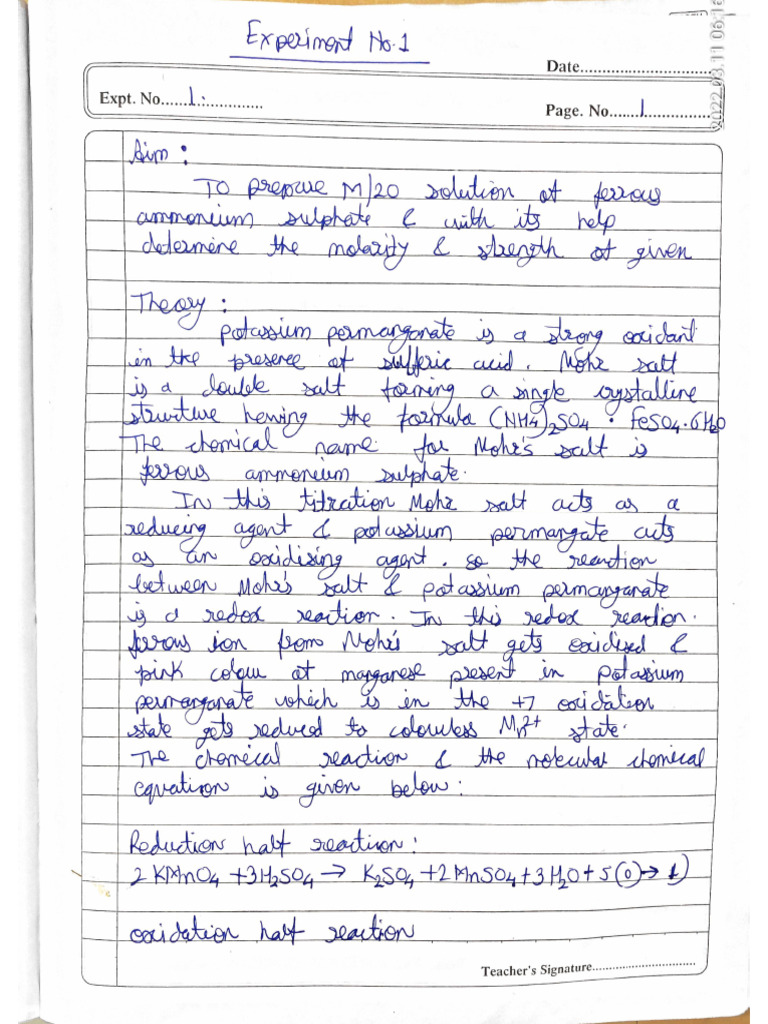 Experiment No.1
2022.03.11 06:16
Date............................
Expt. No......1.:..............
Page. No.......1................
Aim :
To prepare M/20 solution of ferrous
ammonium sulphate & with its help
determine the molarity & strength of given
Theory :
potassium permanganate is a strong oxidant
in the presence of sulferic acid. Mohr salt
is a double salt forming a single crystalline
structure having the formula (NH4)₂SO₄ · FeSO₄.6H₂O
The chemical name for Mohr's salt is
ferrous ammonium sulphate.
In this titration Mohr salt acts as a
reducing agent & potassium permangate acts
as an oxidising agent. so the reaction
between Mohr's salt & potassium permanganate
is a redox reaction. In this redox reaction.
ferrous ion from Mohr's salt gets oxidised &
pink colour of manganese present in potassium
permanganate which is in the +7 oxidation
state gets reduced to colourless Mn²⁺ state.
The chemical reaction & the molecular chemical
equation is given below:
Reduction half reaction:
2 KMnO₄ + 3H₂SO₄ → K₂SO₄ + 2MnSO₄ + 3H₂O + 5(O) → 1)
oxidation half reaction
Teacher's Signature............................